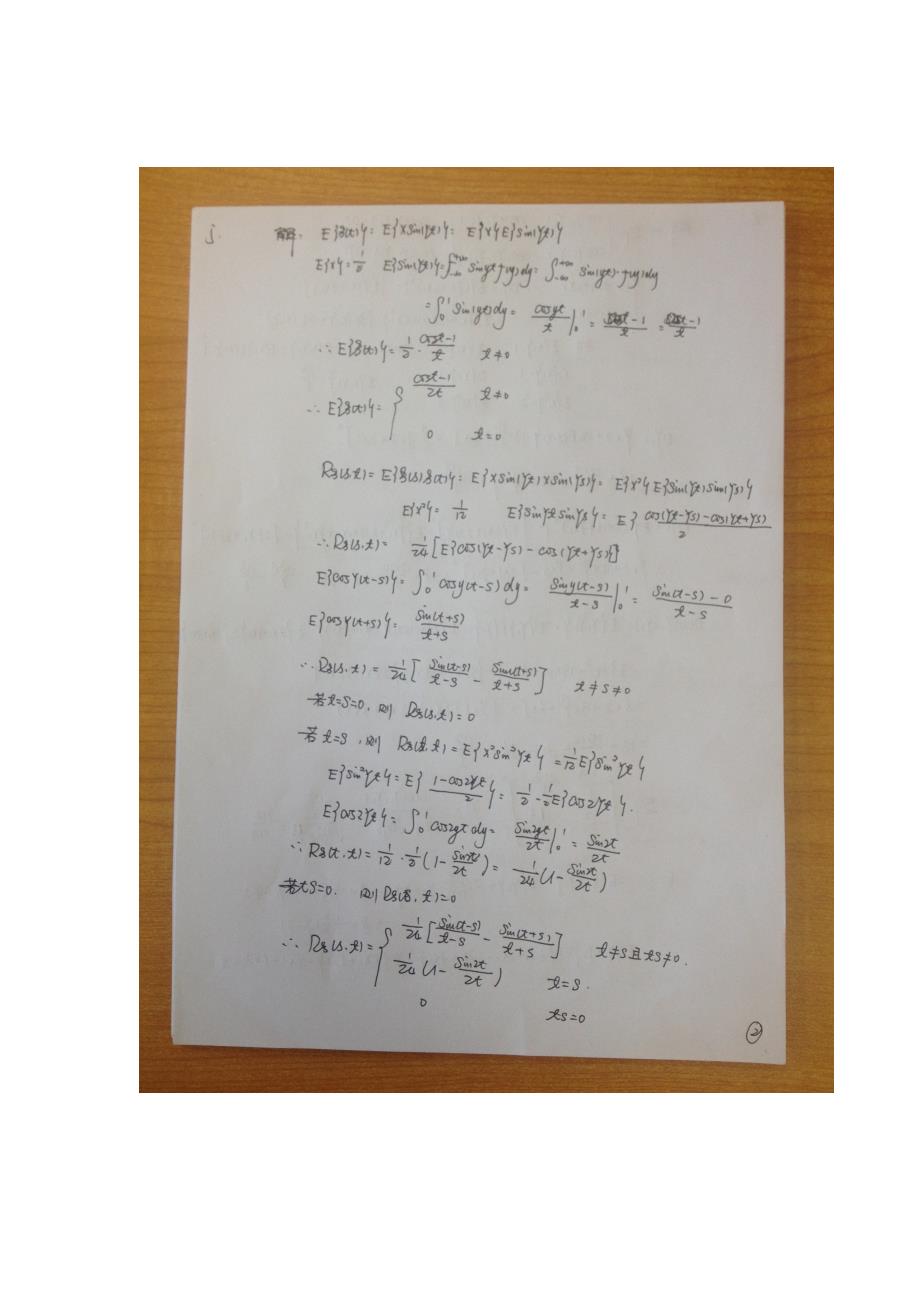 5. 解: E{ξ(t)} = E{Xsin(Yt)} = E{X}E{sin(Yt)}
E{X} = 1/2 E{sin(Yt)} = ∫_{-∞}^{+∞} sin yt f(y) dy = ∫_{-∞}^{+∞} sin(yt)·f(y)dy
= ∫_0^1 sin(yt)dy = cosyt/t |_0^1 = cost-1/t = cost-1/t
∴ E{ξ(t)} = 1/2 · cost-1/t t≠0
∴ E{ξ(t)} = { cost-1/2t t≠0
0 t=0
Rξ(s.t) = E{ξ(s)ξ(t)} = E{Xsin(Yt)Xsin(Ys)} = E{X²}E{sin(Yt)sin(Ys)}
E{X²} = 1/12 E{sinYt sinYs} = E{ cos(Yt-Ys)-cos(Yt+Ys)/2
∴ Rξ(s.t) = 1/24 [E{cos(Yt-Ys) - cos(Yt+Ys)}]
E{cosY(t-s)} = ∫_0^1 cosy(t-s) dy = siny(t-s)/t-s |_0^1 = sin(t-s)-0/t-s
E{cosY(t+s)} = sin(t+s)/t+s
∴ Rξ(s,t) = 1/24 [ sin(t-s)/t-s - sin(t+s)/t+s ] t≠s≠0
若t=s=0, 则 Rξ(s,t)=0
若t=s, 则 Rξ(t,t) = E{X²sin²Yt} = 1/12 E{sin²Yt}
E{sin²Yt} = E{ 1-cos2Yt/2 } = 1/2 - 1/2 E{cos2Yt}.
E{cos2Yt} = ∫_0^1 cos2yt dy = sin2yt/2t |_0^1 = sin2t/2t
∴ Rξ(t,t) = 1/12 · 1/2 (1 - sin2t/2t) = 1/24 (1 - sin2t/2t)
若ts=0. 则 Rξ(s,t)=0
∴ Rξ(s,t) = { 1/24 [ sin(t-s)/t-s - sin(t+s)/t+s ] t≠s且ts≠0.
1/24 (1 - sin2t/2t) t=s.
0 ts=0
②